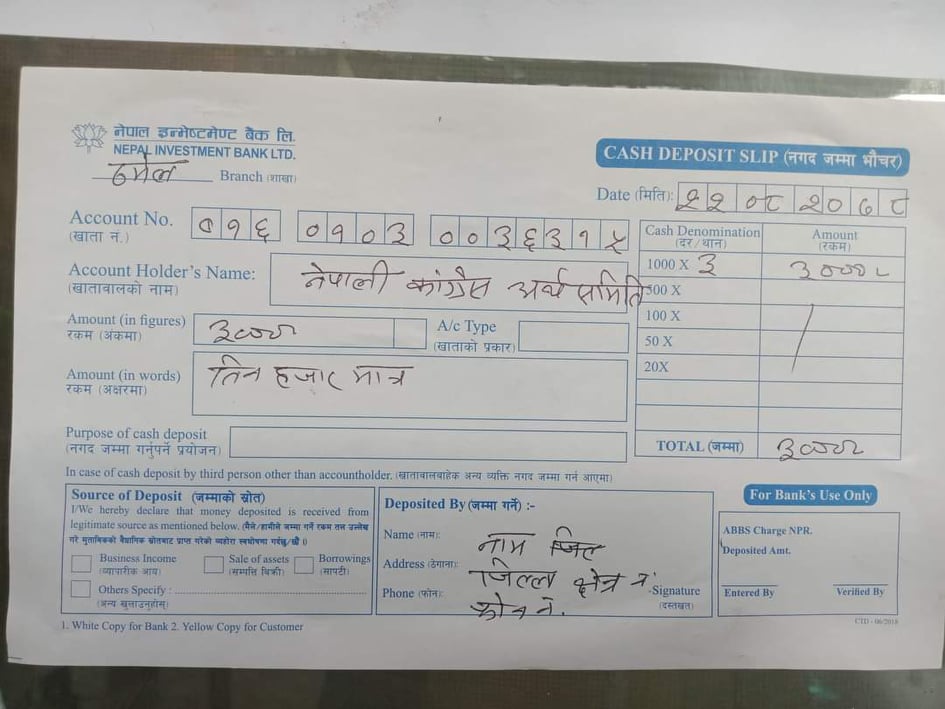 नेपाल इन्भेष्टमेण्ट बैंक लि.
NEPAL INVESTMENT BANK LTD.
ठमेल Branch (शाखा)
CASH DEPOSIT SLIP (नगद जम्मा भौचर)
Date (मिति): २२ ०८ २०७८
Account No. ०१६ ०१०३ ००३६३१५
(खाता नं.)
Cash Denomination (दर/थान) Amount (रकम)
1000 X ३ ३०००/-
500 X
100 X
50 X
20X
TOTAL (जम्मा) ३०००
Account Holder's Name: नेपाली कांग्रेस अर्थ समिति
(खातावालको नाम)
Amount (in figures) ३०००
रकम (अंकमा)
A/c Type
(खाताको प्रकार)
Amount (in words) तिन हजार मात्र
रकम (अक्षरमा)
Purpose of cash deposit
(नगद जम्मा गर्नुपर्ने प्रयोजन)
In case of cash deposit by third person other than accountholder. (खातावालवाहेक अन्य व्यक्ति नगद जम्मा गर्न आएमा)
Source of Deposit (जम्माको स्रोत)
I/We hereby declare that money deposited is received from
legitimate source as mentioned below. (मैले/हामीले जम्मा गर्ने रकम तल उल्लेख
गरे मुताबिकको वैधानिक स्रोतबाट प्राप्त गरेको व्यहोरा स्वघोषणा गर्दछु/छौं।)
Business Income Sale of assets Borrowings
(व्यापारीक आय) (सम्पत्ति बिक्री) (सापटी)
Others Specify :
(अन्य खुलाउनुहोस्)
Deposited By (जम्मा गर्ने) :-
Name (नाम): नाम
Address (ठेगाना): जिल्ला क्षेत्र नं
Phone (फोन): फोन नं.
Signature
(दस्तखत)
For Bank's Use Only
ABBS Charge NPR.
Deposited Amt.
Entered By Verified By
1. White Copy for Bank 2. Yellow Copy for Customer
CTD - 06/2018